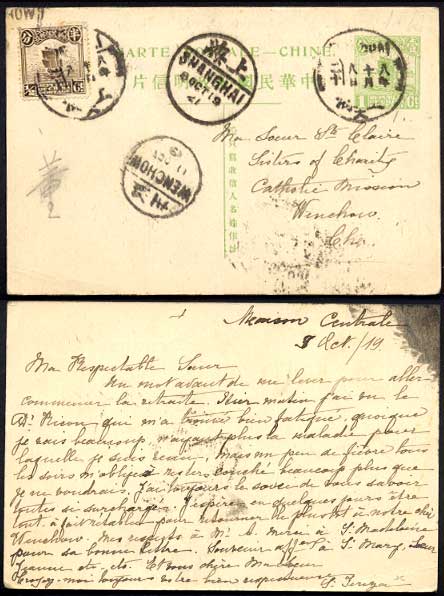 CARTE POSTALE—CHINE.
中華民國郵政明信片
上海
SHANGHAI
8 OCT 19
溫州
WENCHOW
11 OCT
只寫收信人名姓住址
Ma Soeur Ste Claire
Sisters of Charity
Catholic Mission
Wenchow
Che.
董
Maison Centrale
8 Oct. /19
Ma Respectable Soeur
Un mot avant de me lever pour aller
commencer la retraite. Hier matin j'ai vu le
Dr. qui m'a trouvé bien fatiguée, quoique
je vais beaucoup, n'ayant plus la maladie pour
laquelle je suis venue. Mais un peu de fièvre tous
les soirs m'oblige rester couchée beaucoup plus que
je ne voudrais. J'ai toujours le souci de vous savoir
toutes si surchargées. J'espère en quelques jours être
tout à fait rétablie pour retourner le plus tôt à notre cher
Wenchow. Mes respects à Mr. merci à S. Madeleine
pour sa bonne lettre. Souvenir à S. Mary, Soeur
Jeanne etc. etc. Et vous chère Ma Soeur
Croyez-moi toujours votre bien respectueuse